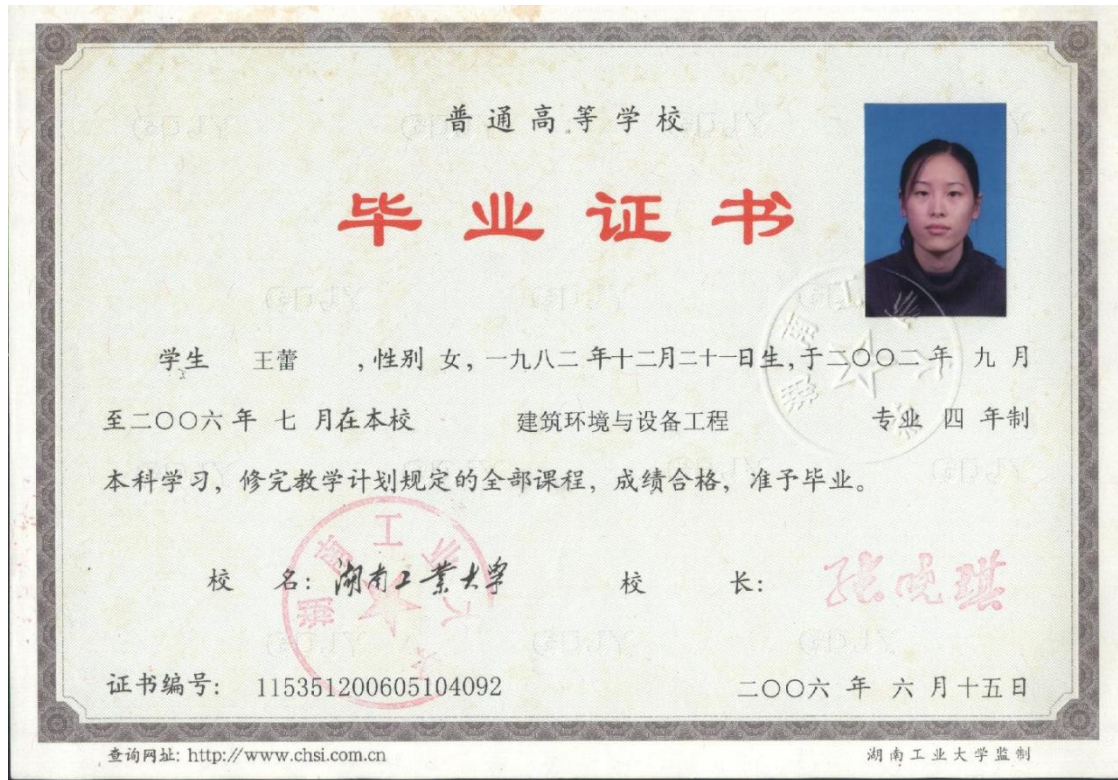 普通高等学校
毕业证书
学生 王蕾 ,性别 女,一九八二 年十二月二十一日生,于二〇〇二 年 九 月
至二〇〇六 年 七 月在本校 建筑环境与设备工程 专业 四 年制
本科学习,修完教学计划规定的全部课程,成绩合格,准予毕业。
校 名: 湖南工業大学 校 长: 张晓琪
湖南工业大学
湖南工业大学
证书编号: 115351200605104092 二〇〇六 年 六 月十五日
查询网址: http://www.chsi.com.cn 湖南工业大学监制